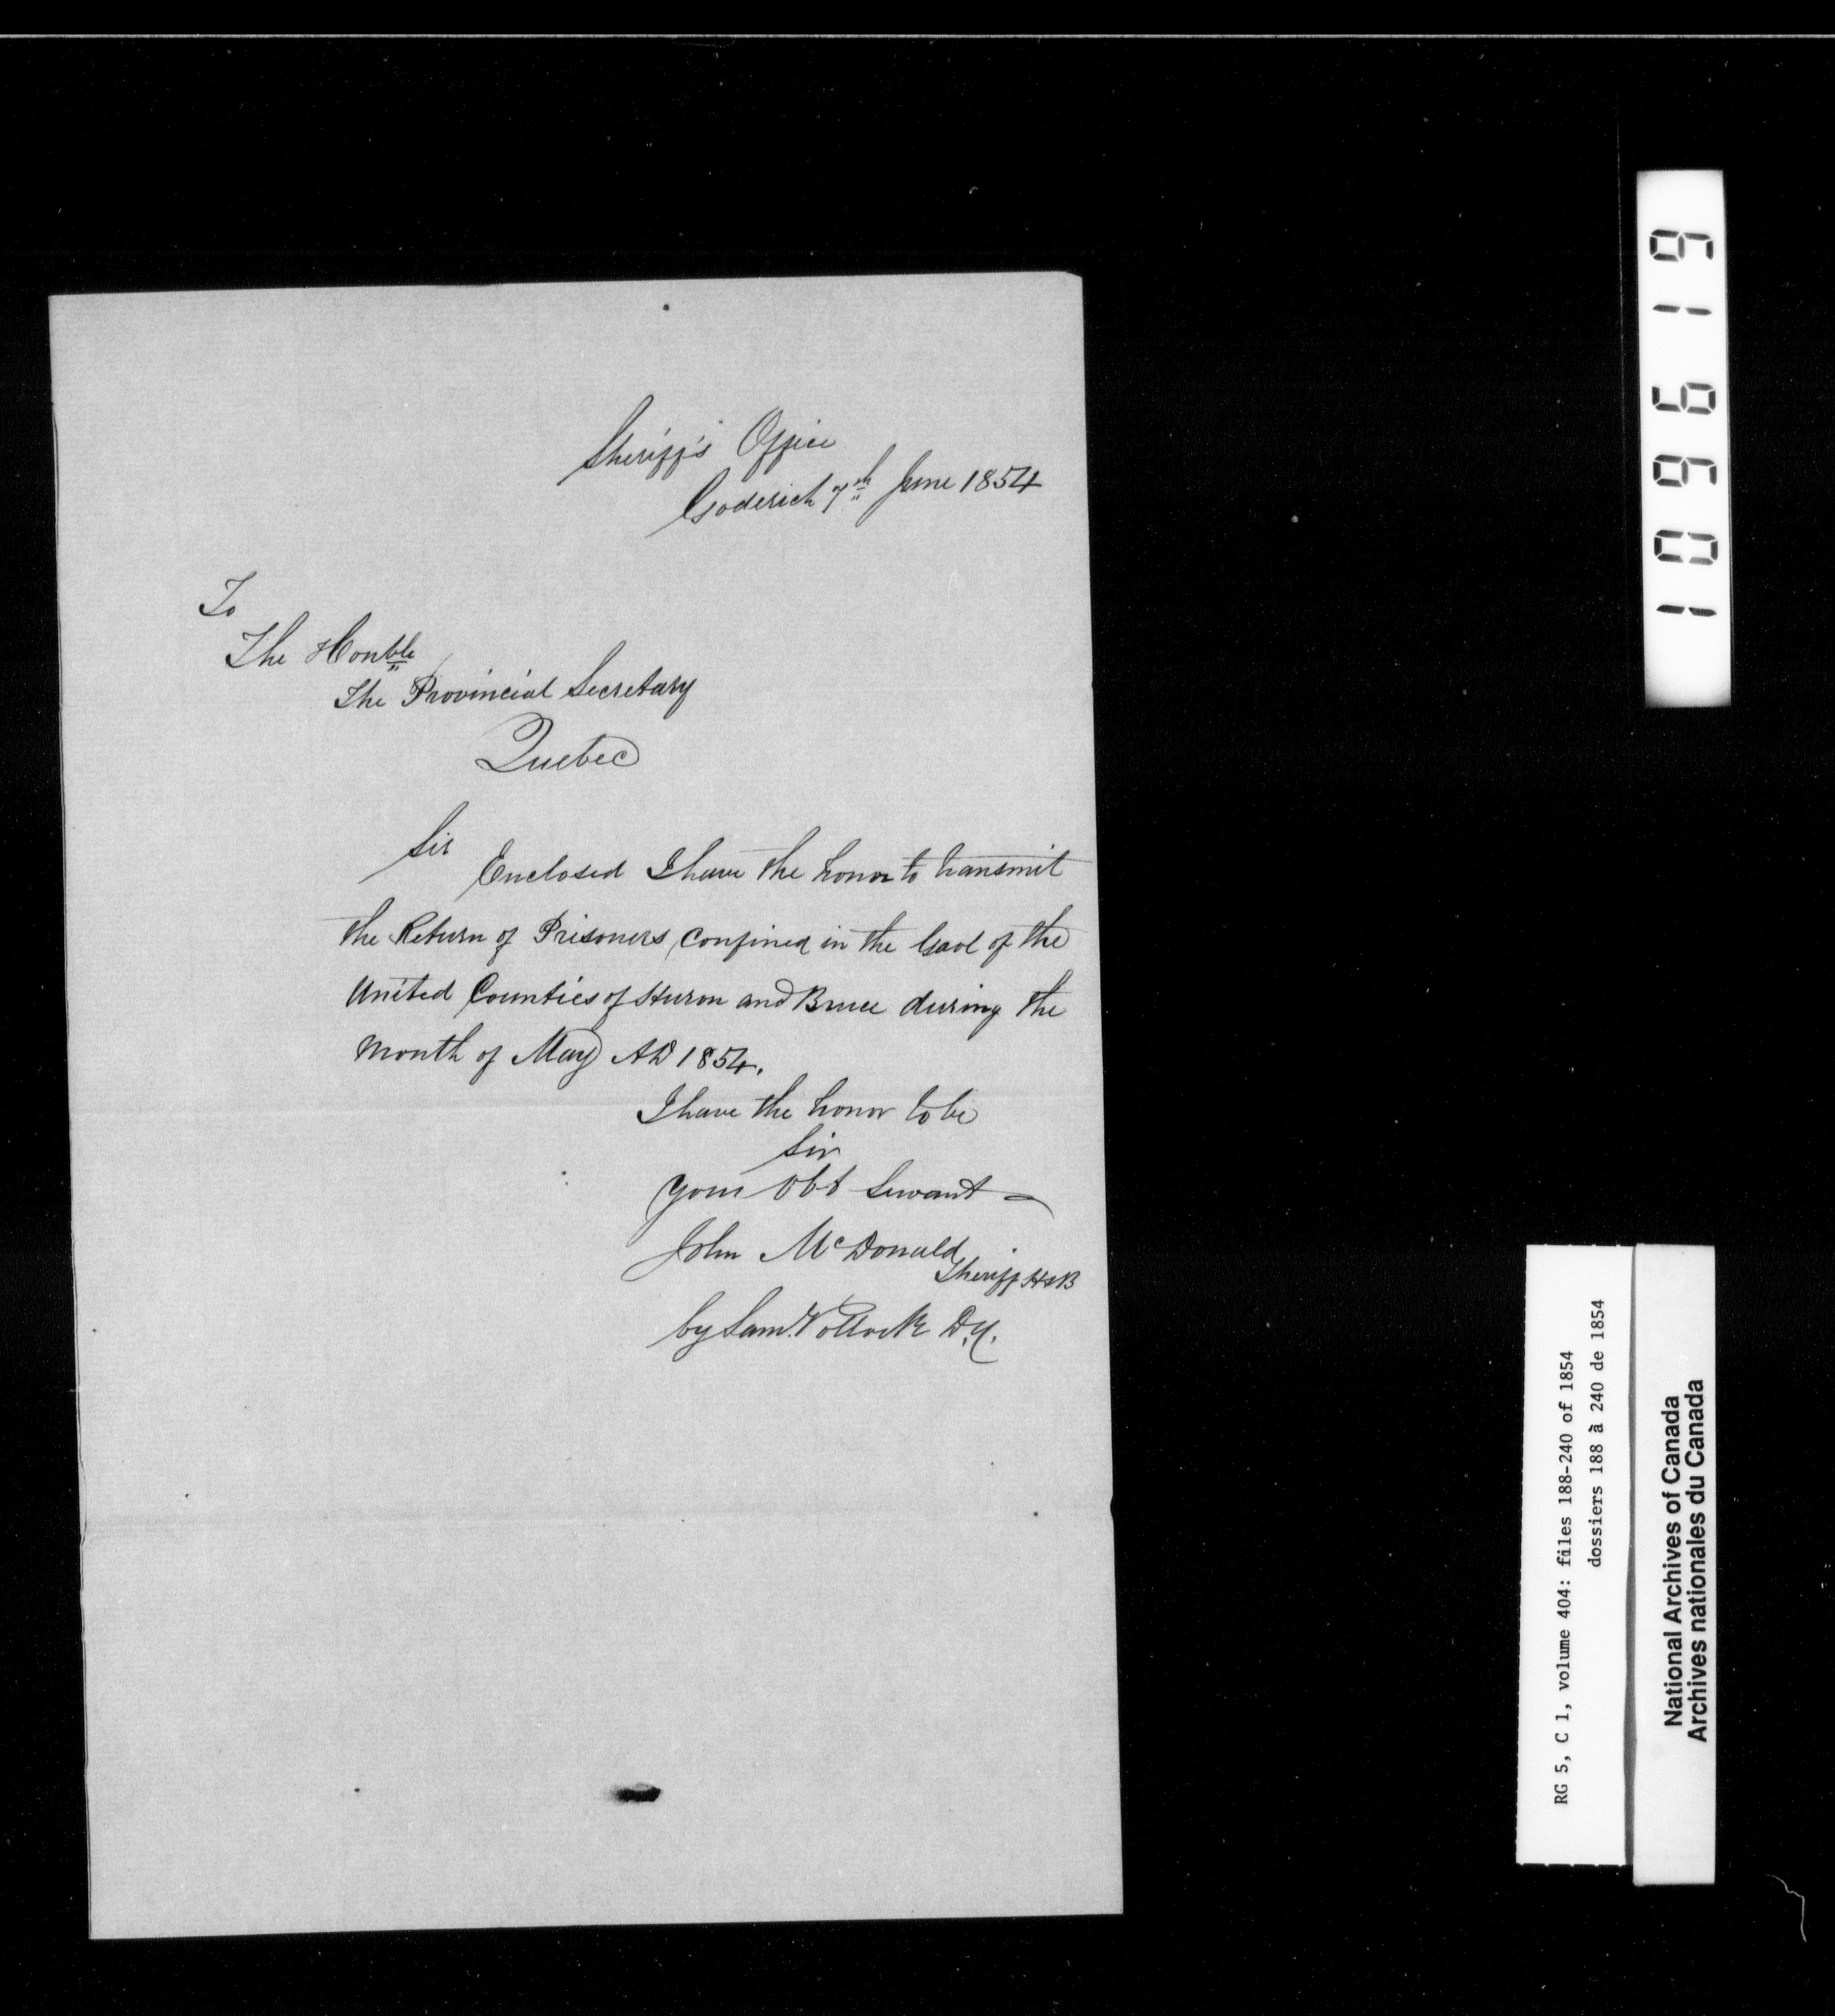 Sheriff's Office
Goderich 7th June 1854
To
The Honble
The Provincial Secretary
Quebec
Sir
Enclosed I have the honor to transmit
the Return of Prisoners confined in the Gaol of the
United Counties of Huron and Bruce during the
Month of May AD 1854.
I have the honor to be
Sir
Your Obt Servant
John McDonald
Sheriff H&B
by Saml Pollock D.S.
109619
RG 5, C 1, volume 404: files 188-240 of 1854
dossiers 188 à 240 de 1854
National Archives of Canada
Archives nationales du Canada